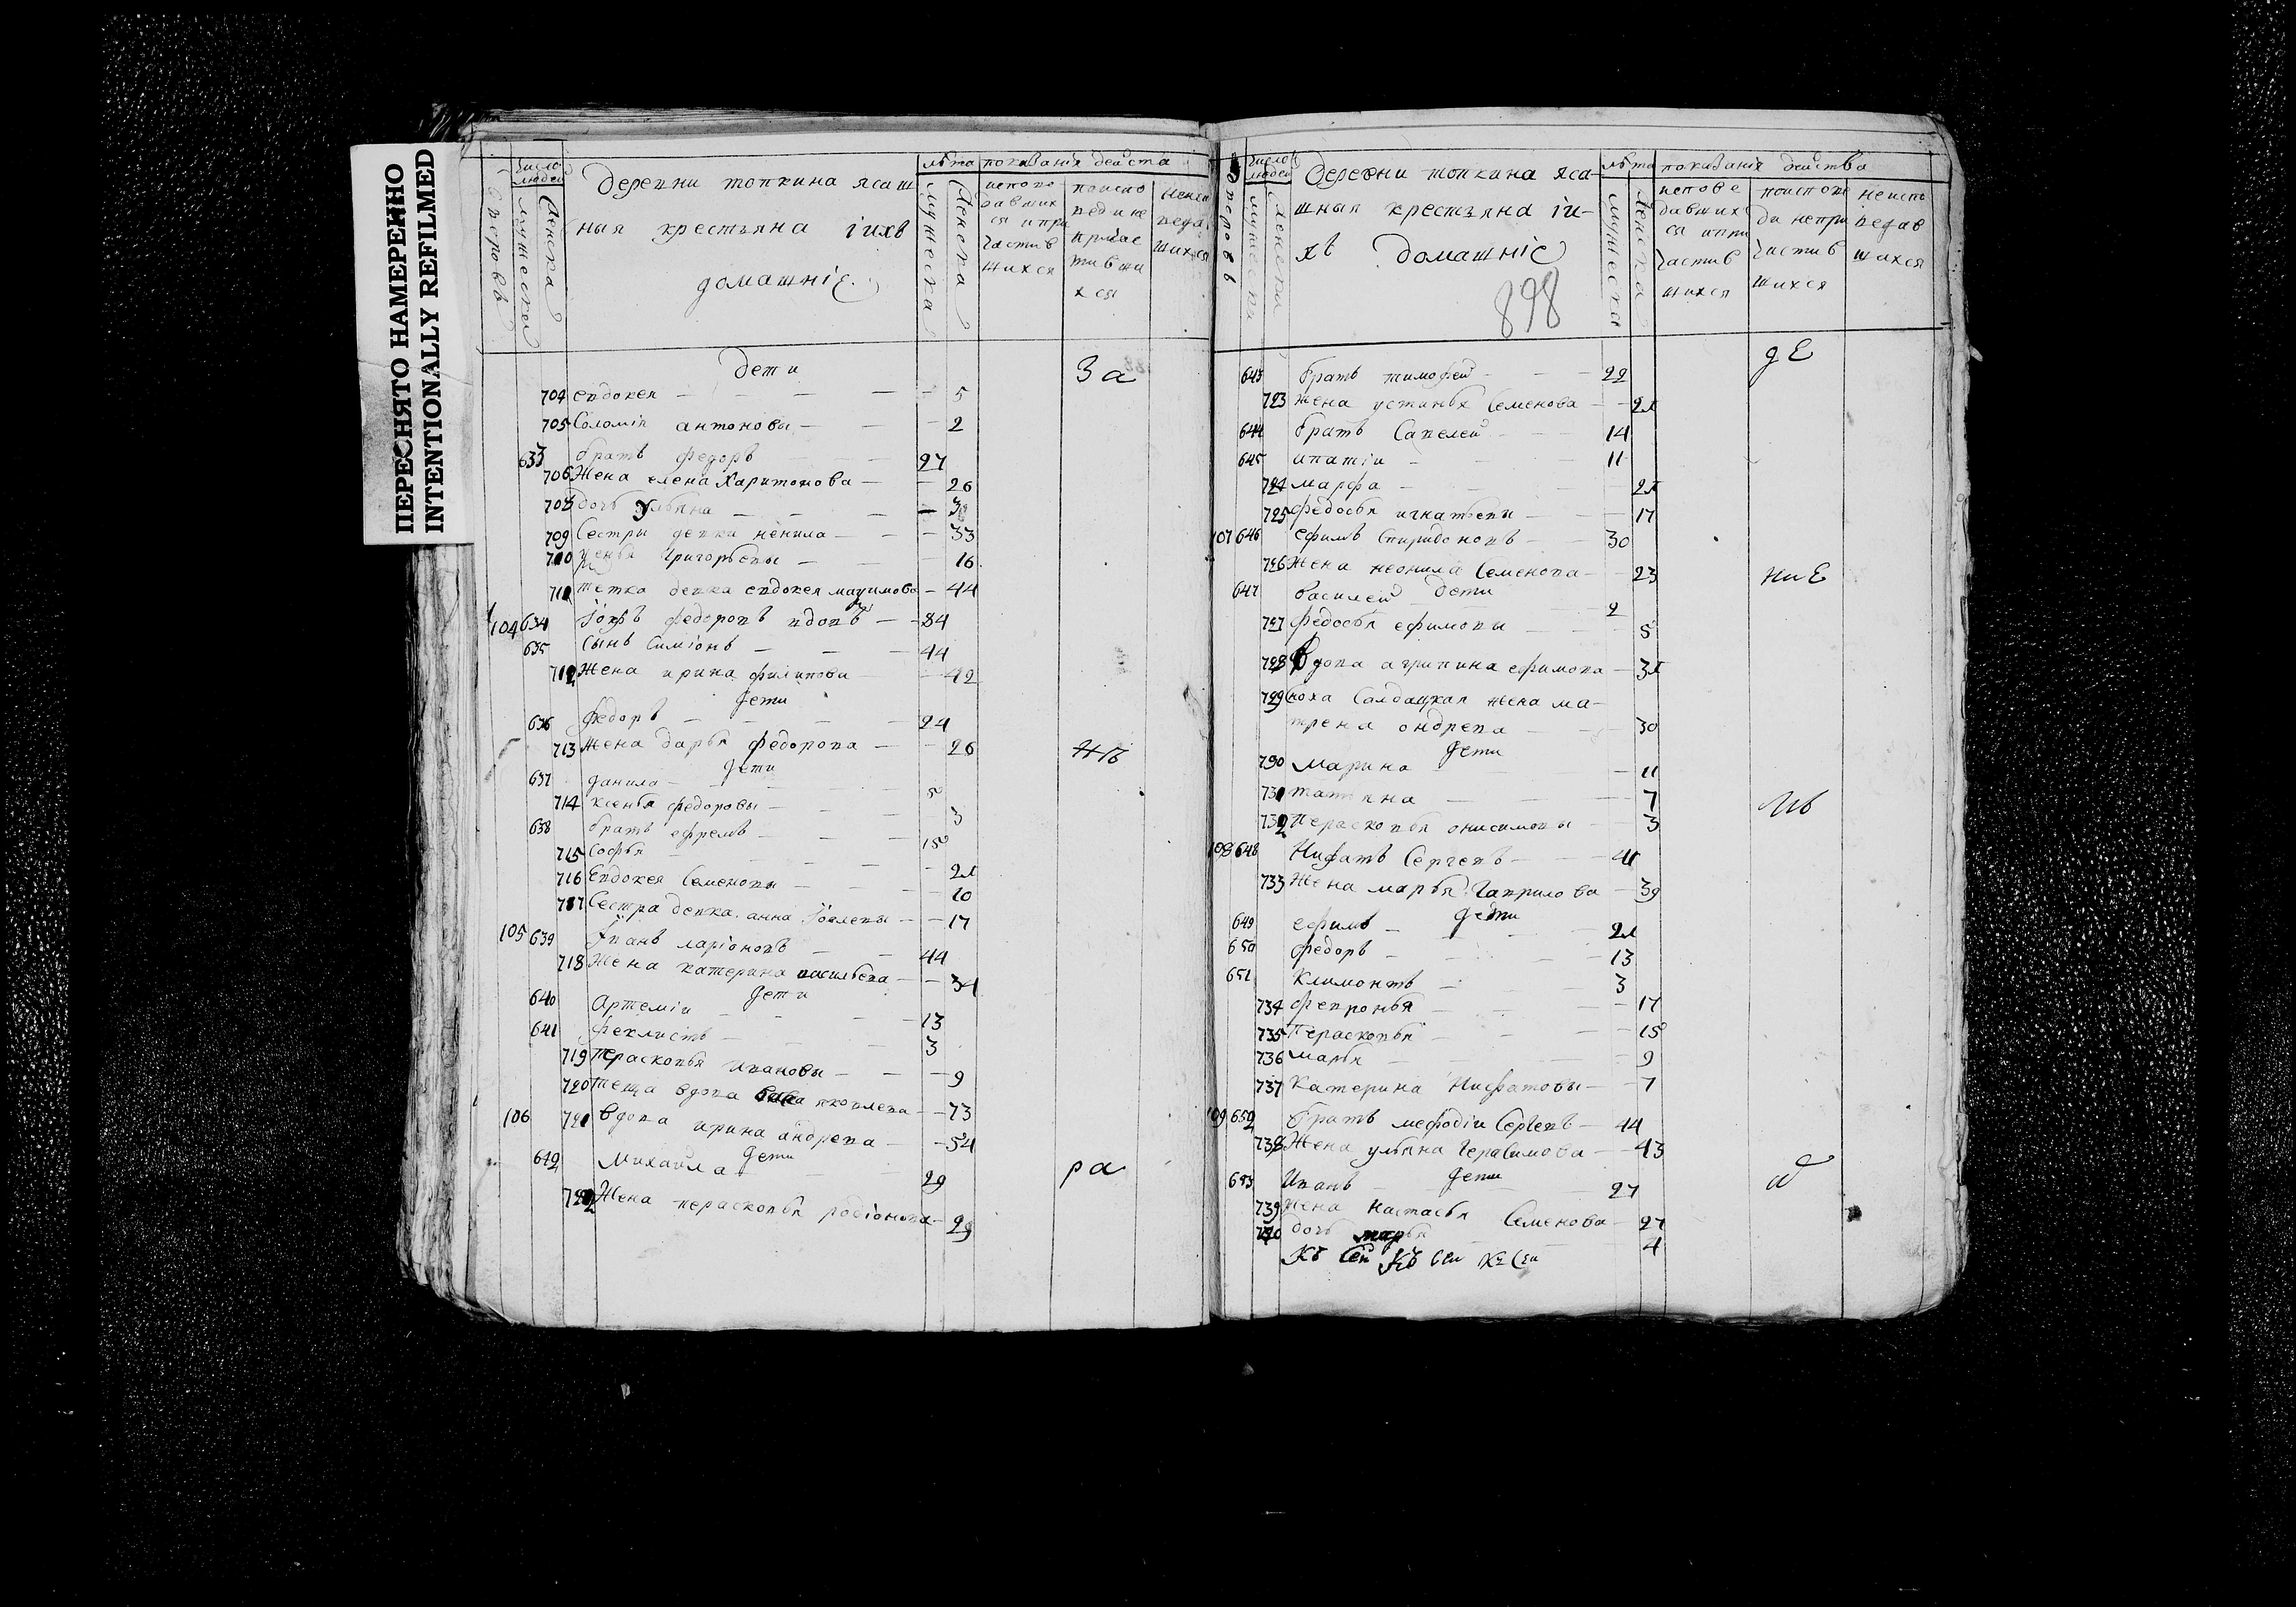 ПЕРЕСНЯТО НАМЕРЕННО
INTENTIONALLY REFILMED
число людей
дворовъ
мужеска
женска
деревни топкина ясаш
ныя крестьяна іихъ
домашніе
лѣта
мужеска
женска
показанія действа
дети
За
704 евдокея 5
705 Соломія антоновы 2
633 братъ федоръ 27
706 Жена елена Харитонова 26
708 дочь Ульяна
709 Сестры девки ненила 33
григорьевы 16
тетка девка евдокея 44
104 634 федоровъ вдовъ 84
635 сынъ Симіонъ 44
712 Жена ирина филипова 42
дети
636 федоръ 24
713 Жена дарья федорова 26
дети
637 данила 5
714 ксенья федоровы 3
638 братъ ефремъ 15
715 Софья 21
716 Евдокея Семеновы 10
717 Сестра девка анна 17
105 639 Іванъ ларіоновъ 44
718 Жена катерина васильева 34
дети
640 Артеміи 13
641 феклистъ 3
719 пераскопья ивановы 9
720 теща вдова 73
106 721 вдова ирина андрева 54
дети
642 Михайла 29
ра
722 Жена пераскопья родіонова 29
число людей
дворовъ
мужеска
женска
Деревни топкина яса-
шныя крестьяна іи-
хъ домашніе
898
лѣта
мужеска
показанія действа
испове
давших
ся и при
частив
шихся
неиспо
ведав
шихся
дЕ
643 братъ тимофеи 22
723 Жена устинья Семенова 21
644 братъ Савелеи 14
645 ипатіи 11
724 марфа 21
725 федосья игнатьевы 17
107 646 ефимъ Спиридоновъ 30
726 Жена неонила Семенова 23
ниЕ
дети
647 василеи 2
727 федосья ефимовы 5
728 Вдова агрипина ефимова 31
729 сноха Салдацкая жена ма-
трена ондрева 30
дети
730 Марина 11
731 татьяна 7
732 Пераскопья онисимовы 3
108 648 Нифатъ Сергевъ 41
733 Жена марья гаврилова 39
дети
649 ефимъ 21
650 федоръ 13
651 Климонтъ 3
734 февронья 17
735 Пераскопья 15
736 марья 9
737 Катерина Нифатовы 7
109 652 братъ мефодіи Сергевъ 44
738 Жена ульяна герасимова 43
дети
653 Иванъ 27
739 Жена Настасья Семенова 27
740 дочь марья 4
Къ Сеи Къ Сеи Къ Сеи